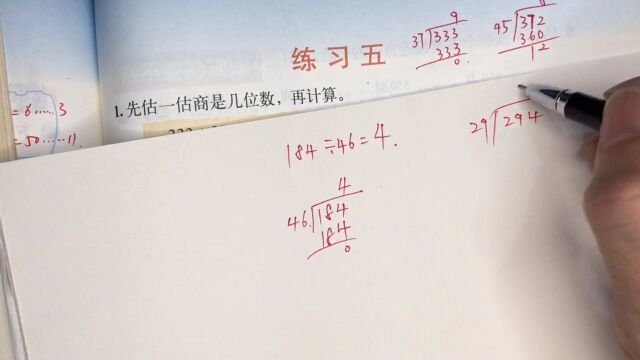 练习五
9
37)333
333
0
8
45)372
360
12
1.先估一估商是几位数,再计算。
=6……3
=50……11
184÷46=4.
4
46)184
184
0
29)294